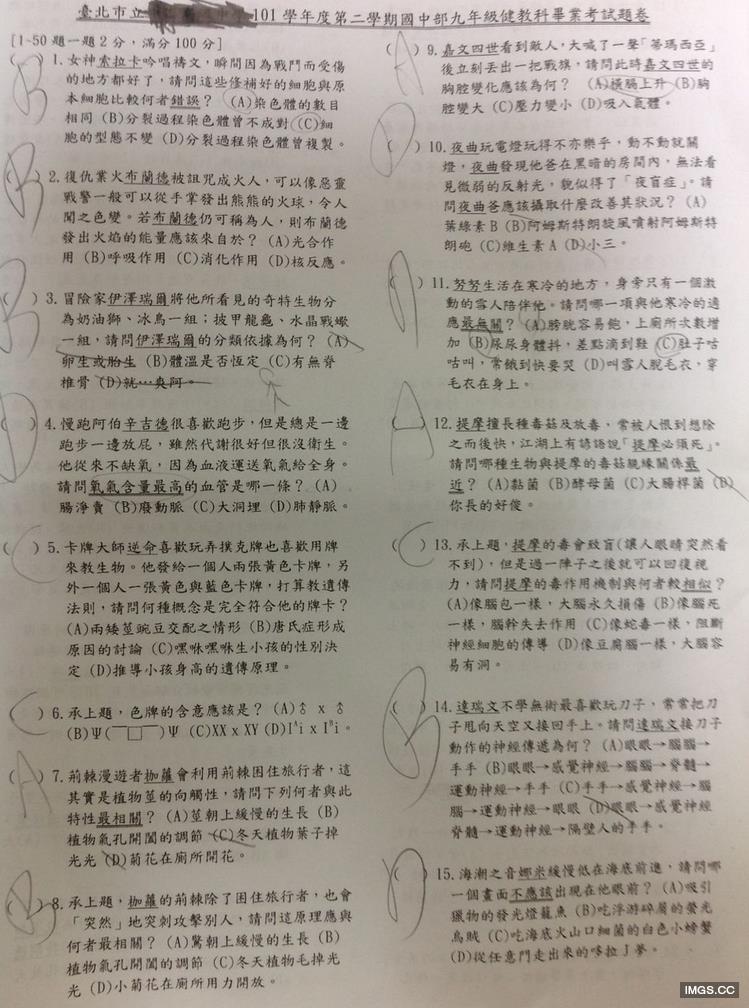 臺北市立 101學年度第二學期國中部九年級健教科畢業考試題卷
[1~50題一題2分,滿分100分]
( B ) 1. 女神索拉卡吟唱禱文,瞬間因為戰鬥而受傷
的地方都好了,請問這些修補好的細胞與原
本細胞比較何者錯誤? (A)染色體的數目
相同 (B)分裂過程染色體曾不成對 (C)細
胞的型態不變 (D)分裂過程染色體曾複製。
( B ) 2. 復仇業火布蘭德被詛咒成火人,可以像惡靈
戰警一般可以從手掌發出熊熊的火球,令人
聞之色變。若布蘭德仍可稱為人,則布蘭德
發出火焰的能量應該來自於? (A)光合作
用 (B)呼吸作用 (C)消化作用 (D)核反應。
( B ) 3. 冒險家伊澤瑞爾將他所看見的奇特生物分
為奶油獅、冰鳥一組;披甲龍龜、水晶戰蠍
一組,請問伊澤瑞爾的分類依據為何? (A)
卵生或胎生 (B)體溫是否恆定 (C)有無脊
椎骨 (D)就…奐阿。
( D ) 4. 慢跑阿伯辛吉德很喜歡跑步,但是總是一邊
跑步一邊放屁,雖然代謝很好但很沒衛生。
他從來不缺氧,因為血液運送氧氣給全身。
請問氧氣含量最高的血管是哪一條? (A)
腸淨賣 (B)廢動脈 (C)大洞埋 (D)肺靜脈。
( C ) 5. 卡牌大師逆命喜歡玩弄撲克牌也喜歡用牌
來教生物。他發給一個人兩張黃色卡牌,另
外一個人一張黃色與藍色卡牌,打算教遺傳
法則,請問何種概念是完全符合他的牌卡?
(A)兩矮莖豌豆交配之情形 (B)唐氏症形成
原因的討論 (C)嘿咻嘿咻生小孩的性別決
定 (D)推導小孩身高的遺傳原理。
( C ) 6. 承上題,色牌的含意應該是? (A)♂ x ♂
(B)Ψ(￣□￣)Ψ (C)XX x XY (D)Iᴬi x Iᴮi。
( A ) 7. 荊棘漫遊者枷蘿會利用荊棘困住旅行者,這
其實是植物莖的向觸性,請問下列何者與此
特性最相關? (A)莖朝上緩慢的生長 (B)
植物氣孔開闔的調節 (C)冬天植物葉子掉
光光 (D)菊花在廁所開花。
( B ) 8. 承上題,枷蘿的荊棘除了困住旅行者,也會
「突然」地突刺攻擊別人,請問這原理應與
何者最相關? (A)驚朝上緩慢的生長 (B)
植物氣孔開闔的調節 (C)冬天植物毛掉光
光 (D)小菊花在廁所用力開放。
( A ) 9. 嘉文四世看到敵人,大喊了一聲「蒂瑪西亞」
後立刻丟出一把戰旗,請問此時嘉文四世的
胸腔變化應該為何? (A)橫膈上升 (B)胸
腔變大 (C)壓力變小 (D)吸入氣體。
( D ) 10. 夜曲玩電燈玩得不亦樂乎,動不動就關
燈,夜曲發現他爸在黑暗的房間內,無法看
見微弱的反射光,貌似得了「夜盲症」。請
問夜曲爸應該攝取什麼改善其狀況? (A)
葉綠素B (B)阿姆斯特朗旋風噴射阿姆斯特
朗砲 (C)維生素A (D)小三。
( A ) 11. 努努生活在寒冷的地方,身旁只有一個激
動的雪人陪伴他。請問哪一項與他寒冷的適
應最無關? (A)膀胱容易飽,上廁所次數增
加 (B)尿尿身體抖,差點滴到鞋 (C)肚子咕
咕叫,常餓到快要哭 (D)叫雪人脫毛衣,穿
毛衣在身上。
( A ) 12. 提摩擅長種毒菇及放毒,常被人恨到想除
之而後快,江湖上有諺語說「提摩必須死」。
請問哪種生物與提摩的毒菇親緣關係最
近? (A)黏菌 (B)酵母菌 (C)大腸桿菌 (D)
你長的好傻。
( C ) 13. 承上題,提摩的毒會致盲(讓人眼睛突然看
不到),但是過一陣子之後就可以回復視
力,請問提摩的毒作用機制與何者較相似?
(A)像腦包一樣,大腦永久損傷 (B)像腦死
一樣,腦幹失去作用 (C)像蛇毒一樣,阻斷
神經細胞的傳導 (D)像豆腐腦一樣,大腦容
易有洞。
( B ) 14. 達瑞文不學無術最喜歡玩刀子,常常把刀
子甩向天空又接回手上。請問達瑞文接刀子
動作的神經傳遞為何? (A)眼眼→腦腦→
手手 (B)眼眼→感覺神經→腦腦→脊髓→
運動神經→手手 (C)手手→感覺神經→腦
腦→運動神經→眼眼 (D)眼眼→感覺神經→
脊髓→運動神經→隔壁人的手手。
( D ) 15. 海潮之音娜米緩慢低在海底前進,請問哪
一個畫面不應該出現在他眼前? (A)吸引
獵物的發光燈籠魚 (B)吃浮游碎屑的螢光
烏賊 (C)吃海底火山口細菌的白色小螃蟹
(D)從任意門走出來的哆拉J夢。
IMGS.CC